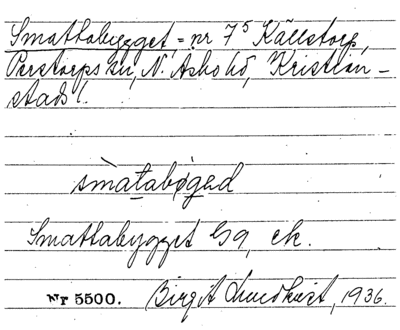 Smattabygget, = nr 7⁵ Källstorp,
Perstorps sn, N. Åsbo hd, Kristian-
stads l.
smàtabøgəd
Smattabygget Gg, ek.
Nr 5500. Birgit Lundkvist, 1936.